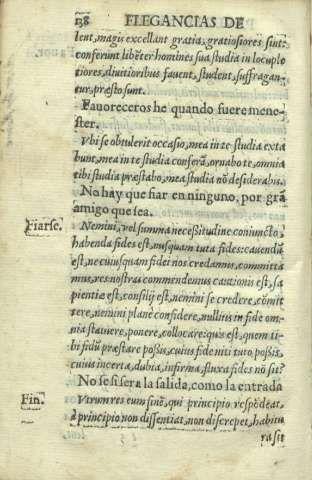 138 ELEGANCIAS DE
lent, magis excellant gratia, gratiosiores sint:
conferunt libẽter homines sua studia in locuple
tiores, diuitioribus fauent, student, suffragan-
tur, præsto sunt.
Fauoreceros he quando fuere mene-
ster.
Vbi se obtulerit occasio, mea in te studia exta
bunt, mea in te studia conferã, ornabo te, omnia
tibi studia præstabo, mea studia nõ desiderabis.
No hay que fiar en ninguno, por grã
amigo que sea.
Fiarse.
Nemini, vel summa necesitudine coniuncto,
habenda fides est, nusquam tuta fides: cauendũ
est, ne cuiusquam fidei nos credamus, committa
mus, res nostras commendemus cautionis est, sa
pientiæ est, consilij est, nemini se credere, cõmit
tere, nemini planè considere, nullius in fide om-
nia statuere, ponere, collocare: quis est, quem ti-
bi fidũ præstare possis, cuius fide niti tuto possis,
cuius incerta, dubia, infirma, fluxa fides nõ sit?
No se si sera la salida, como la entrada
Fin.
Vtrum res eum finẽ, qui principio respõdeat,
à principio non dissentiat, non discrepet, habitu
ra sit